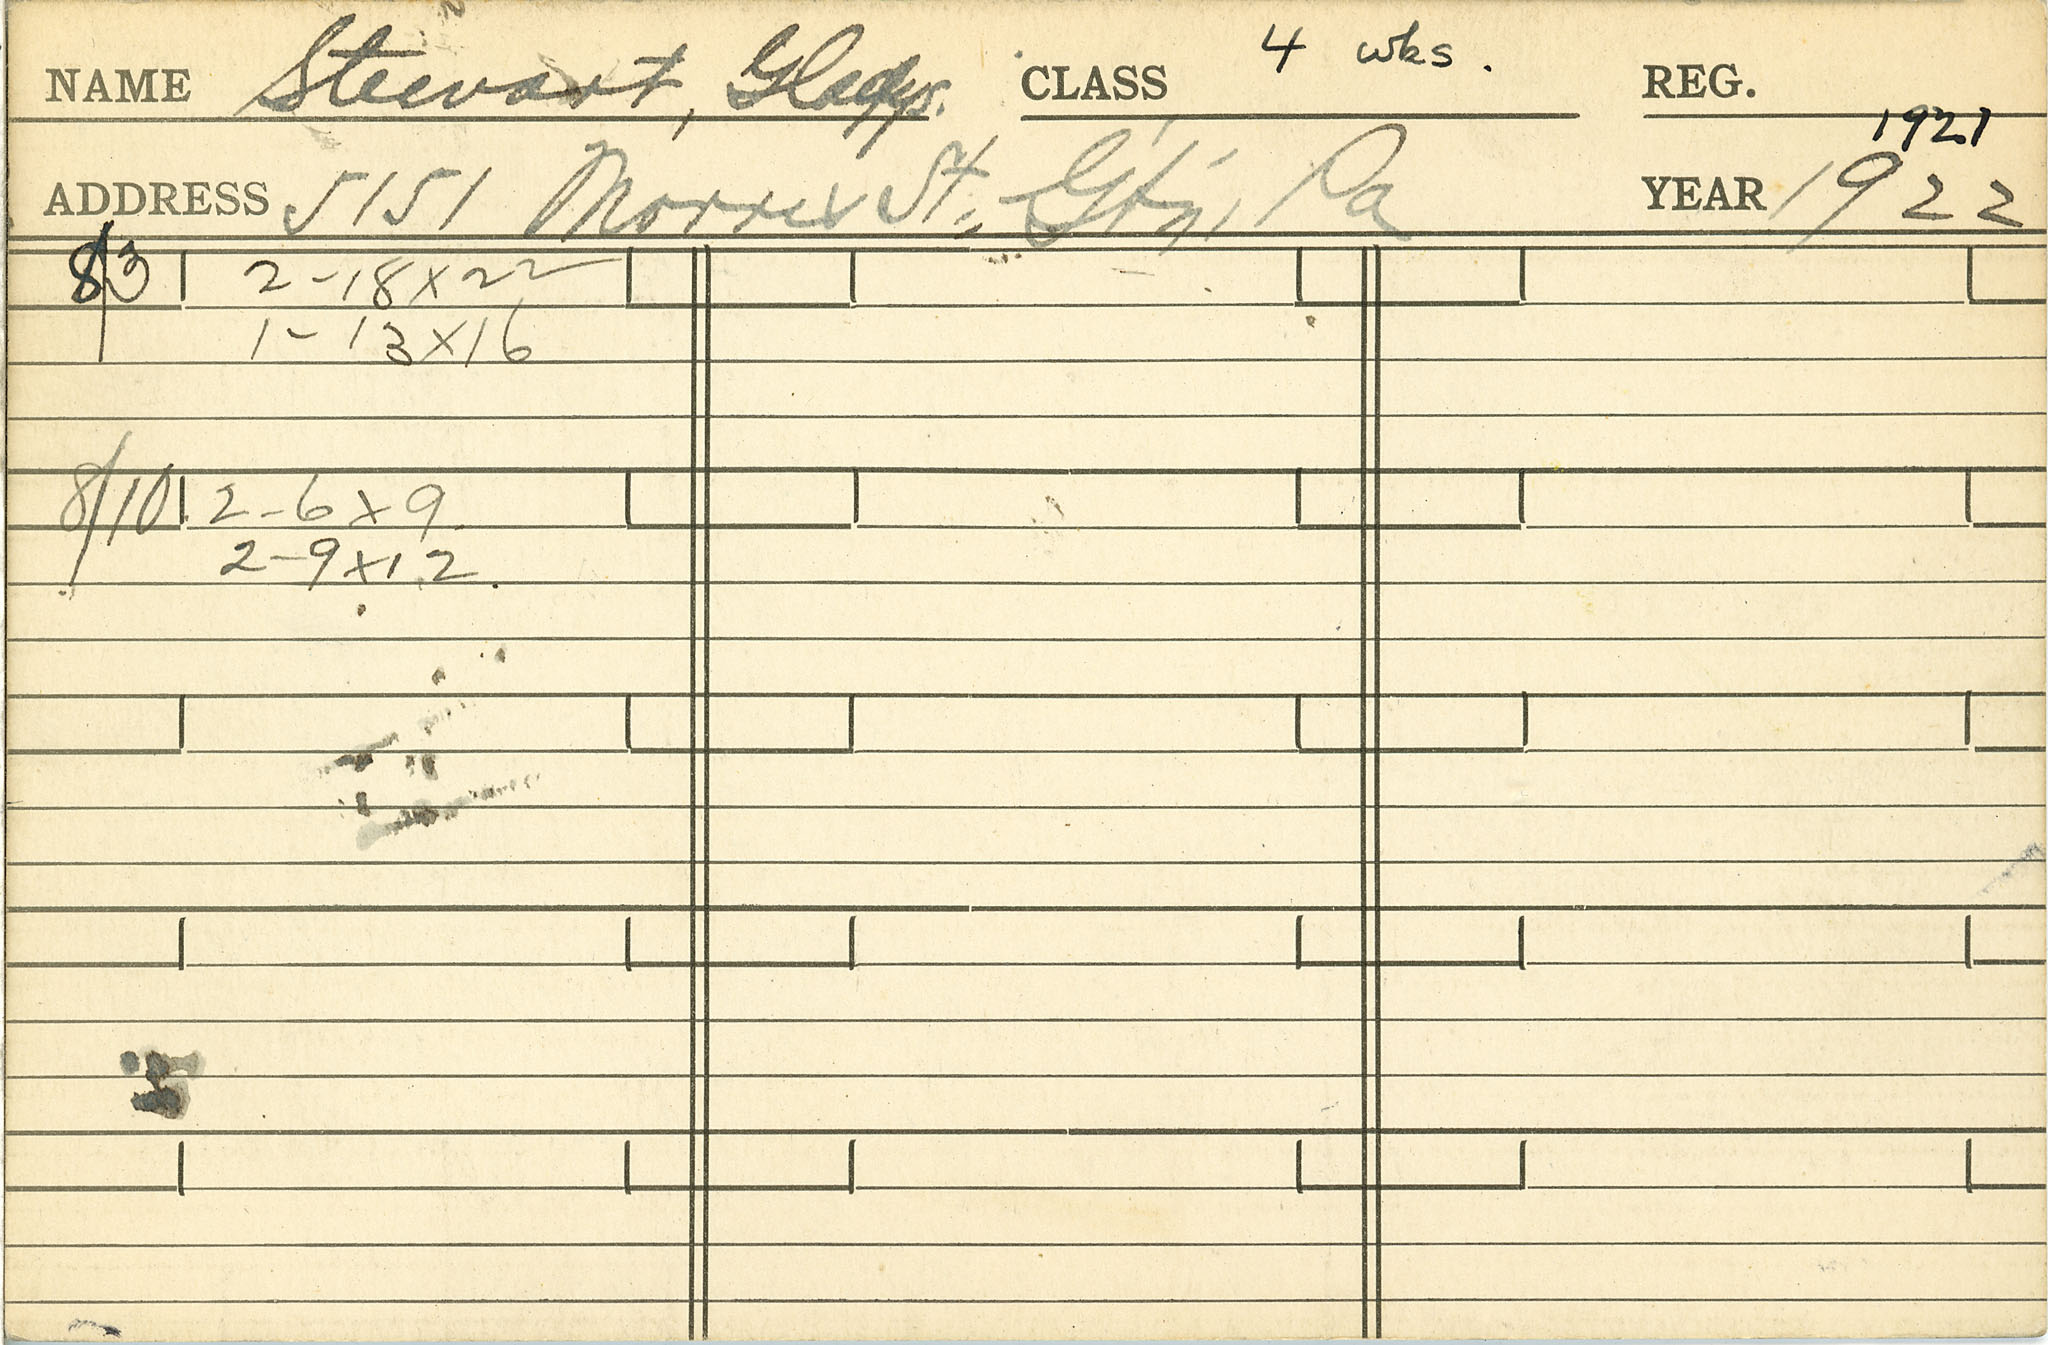 NAME Stewart, Gladys. CLASS 4 wks. REG.
1921
ADDRESS 5151 Morris St., Gtn, Pa YEAR 1922
8/3 2-18x22
1-13x16
8/10 2-6x9
2-9x12.